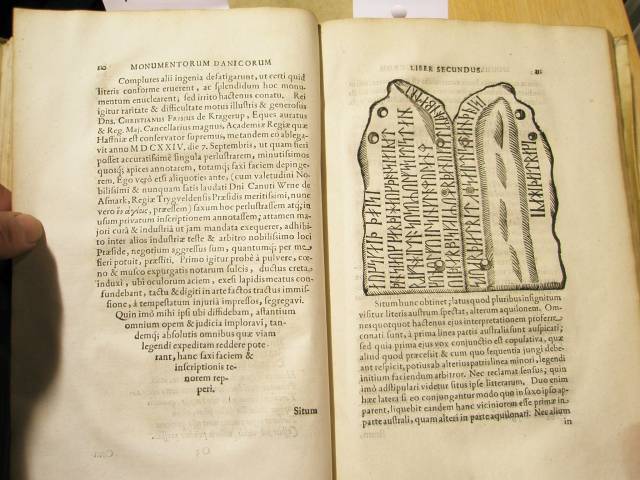 110 MONUMENTORUM DANICORUM
Complures alii ingenia defatigarunt, ut certi quid
literis conforme eruerent, ac splendidum hoc monu-
mentum enuclearent; sed irrito hactenus conatu. Rei
igitur raritate & difficultate motus illustris & generosus
Dns. CHRISTIANUS FRISIUS de Kragerup, Eques auratus
& Reg. Maj. Cancellarius magnus, Academiæ Regiæ quæ
Haffniæ est conservator supremus, metandem eo ablega-
vit anno MDCXXIV. die 7. Septembris, ut quam fieri
posset accuratissimè singula perlustrarem, minutissimos
quosq; apices annotarem, totamq; saxi faciem depinge-
rem. Ego verò etsi aliquoties ante, (cum valetudini No-
bilissimi & nunquam satis laudati Dni Canuti
Asmark, Regiæ Tryggveldensis Præsidis meritissimi, nunc
vero præessem) saxum hoc perlustrassem atq; in
usum privatum inscriptionem annotassem; attamen ma-
jori cura & industria ut jam mandata exequerer, adhibi-
to inter alios industriæ teste & arbitro nobilissimo loci
Præside, negotium aggressus sum, quantumq; per me
fieri potuit, præstiti. Primo igitur probè à pulvere, cœ-
no & musco expurgatis notarum sulcis, ductus creta
induxi, ubi oculorum aciem, exesi lapidis meatus con-
fundebant, tactu & digiti in arte factos tractus immis-
sione, à tempestatum injuria impressos, segregavi.
Quin imò mihi ipsi ubi diffidebam, astantium
omnium opem & judicia imploravi, tan-
demq; absolutis omnibus quæ viam
legendi expeditam reddere pote-
rant, hanc saxi faciem &
inscriptionis te-
norem rep-
peri.
Situm
LIBER SECUNDUS. 111
Situm hunc obtinet; latus quod pluribus insignitum
visitur literis austrum spectat, alterum aquilonem. Om-
nes quotquot hactenus ejus interpretationem proferre
conati sunt, à prima linea partis australi sunt auspicati;
sed quia prima ejus vox conjunctio est copulativa, quæ
aliud quod præcesit & cum quo sequentia jungi debe-
ant respicit, potius ab alterius partis linea minori, legendi
initium faciendum arbitror. Nec reclamat sensus; quin
imò adstipulari videtur situs ipse litterarum. Duo enim
hæc latera si eo conjungantur modo quo in saxo ipso ap-
parent, liquebit eandem hanc viciniorem esse primæ in
parte australi, quam alteri in parte aquilonari. Nec alium
in